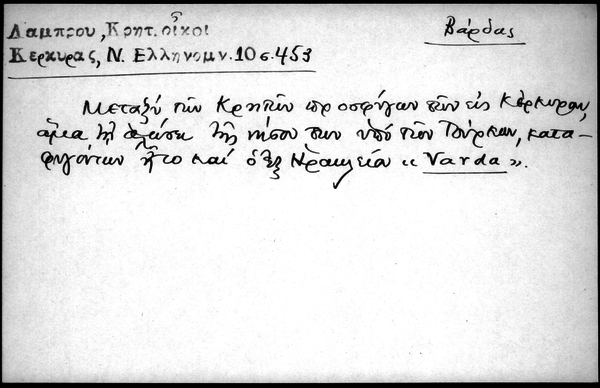 Λαμπρου, Κρητ. οἶκοι
Βάρδας
Κερκυρας, Ν. Ελληνομν. 10 σ. 453
Μεταξύ τῶν Κρητῶν προσφύγων τῶν εἰς Κέρκυραν,
ἅμα τῇ ἁλώσει τῆς νήσου των ὑπό τῶν Τούρκων, κατα-
φυγόντων ἦτο καί ὁ ἐξ Ηρακλείου « Varda ».